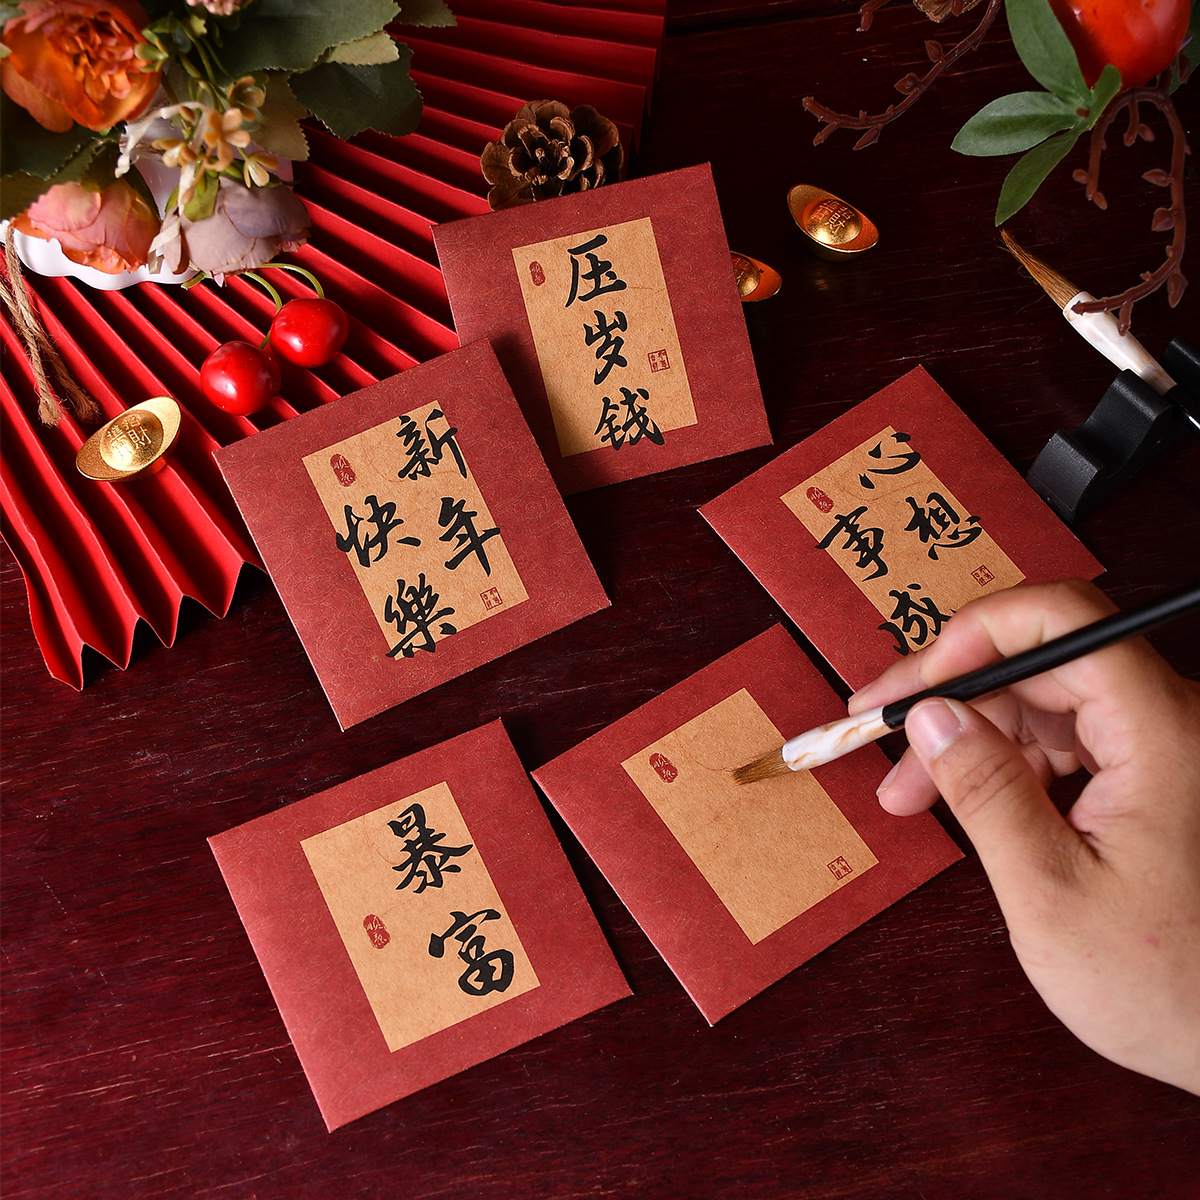 压岁钱
新年
快樂
心想
事成
暴富